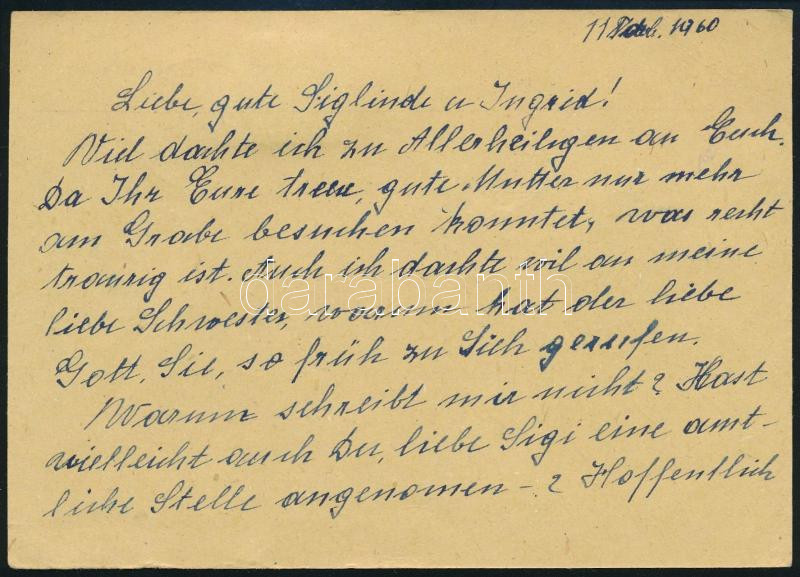 11 1960
Liebe, gute Siglinde u Ingrid!
Viel dachte ich zu Allerheiligen an Euch.
Da Ihr Eure treue, gute Mutter nur mehr
am Grabe besuchen konntet, was recht
traurig ist. Auch ich dachte vil an meine
liebe Schwester, warum hat der liebe
Gott, Sie, so früh zu Sich gerufen.
Warum schreibt mir nicht? Hast
vielleicht auch Du, liebe Sigi eine amt-
liche Stelle angenomen - ? Hoffentlich
darabanth